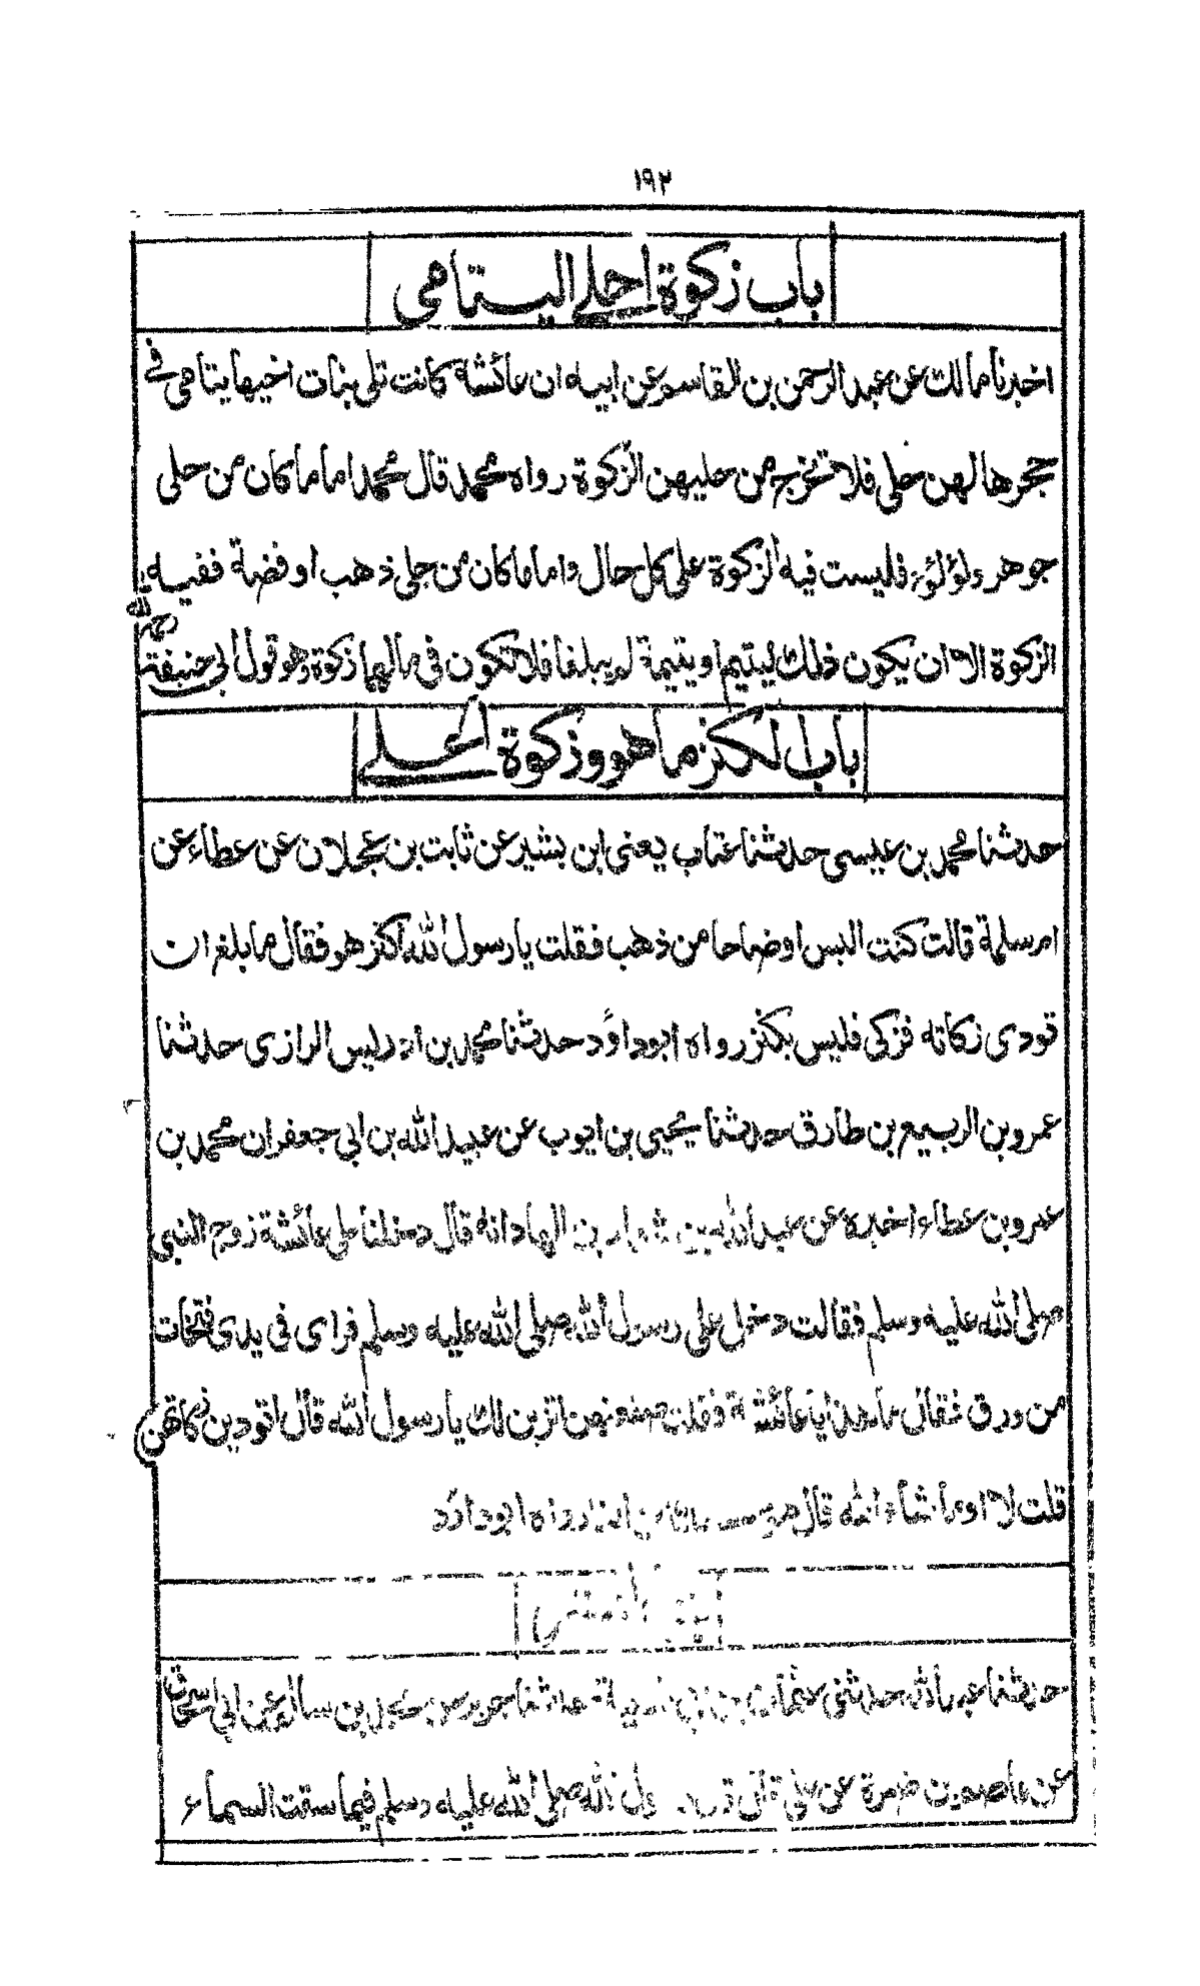 ١٩٢
باب زكوة احلي اليتامى
اخبرنا مالك عن عبد الرحمن بن القاسم عن ابيه ان عائشة كانت تلي بنات اخيها يتامى في
حجرها لهن حلي فلا تخرج من حليهن الزكوة رواه محمد قال محمد اما ما كان من حلي
جوهر ولؤلؤ فليست فيه الزكوة على كل حال واما ما كان من حلي ذهب او فضة ففيه
الزكوة الا ان يكون ذلك ليتيم او يتيمة لم يبلغا فلا تكون في مالهما زكوة وهو قول ابي حنيفة رحمه الله
باب الكنز ما هو وزكوة الحلي
حدثنا محمد بن عيسى حدثنا عتاب يعني ابن بشير عن ثابت بن عجلان عن عطاء عن
ام سلمة قالت كنت البس اوضاحا من ذهب فقلت يا رسول الله اكنز هو فقال ما بلغ ان
تودى زكاته فزكى فليس بكنز رواه ابوداود حدثنا محمد بن ادريس الرازى حدثنا
عمرو بن الربيع بن طارق حدثنا يحيى بن ايوب عن عبيد الله بن ابي جعفر ان محمد بن
عمرو بن عطاء اخبره عن عبد الله بن شداد بن الهاد انه قال دخلنا على عائشة زوج النبي
صلى الله عليه وسلم فقالت دخل علي رسول الله صلى الله عليه وسلم فراى في يدى فتخات
من ورق فقال ما هذا يا عائشة فقلت صنعتهن اتزين لك يا رسول الله قال اتودين زكاتهن
قلت لا او ما شاء الله قال هو حسبك من النار رواه ابوداود
حدثنا عبد الله حدثني عثمان بن ابي شيبة حدثنا جرير عن محمد بن سالم عن ابي اسحاق
عن عاصم بن ضمرة عن علي قال قال رسول الله صلى الله عليه وسلم فيما سقت السماء